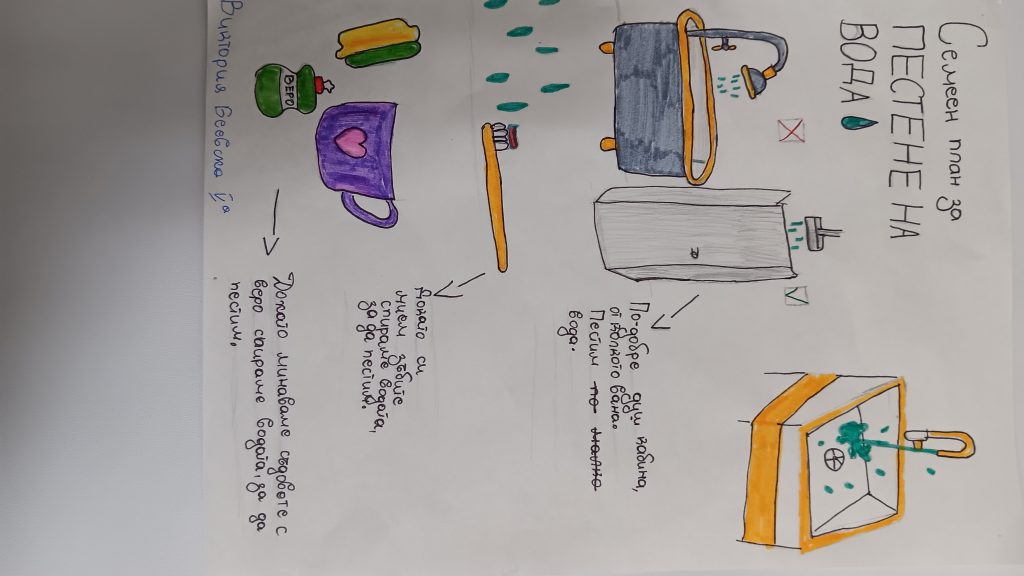 Семеен план за
ПЕСТЕНЕ НА
ВОДА
По-добре душ кабина,
отколкото вана.
Пестим по-малко
вода.
Докато си
мием зъбите
спираме водата,
за да пестим.
ВЕРО
Докато минаваме съдовете с
веро спираме водата, за да
пестим.
Виктория